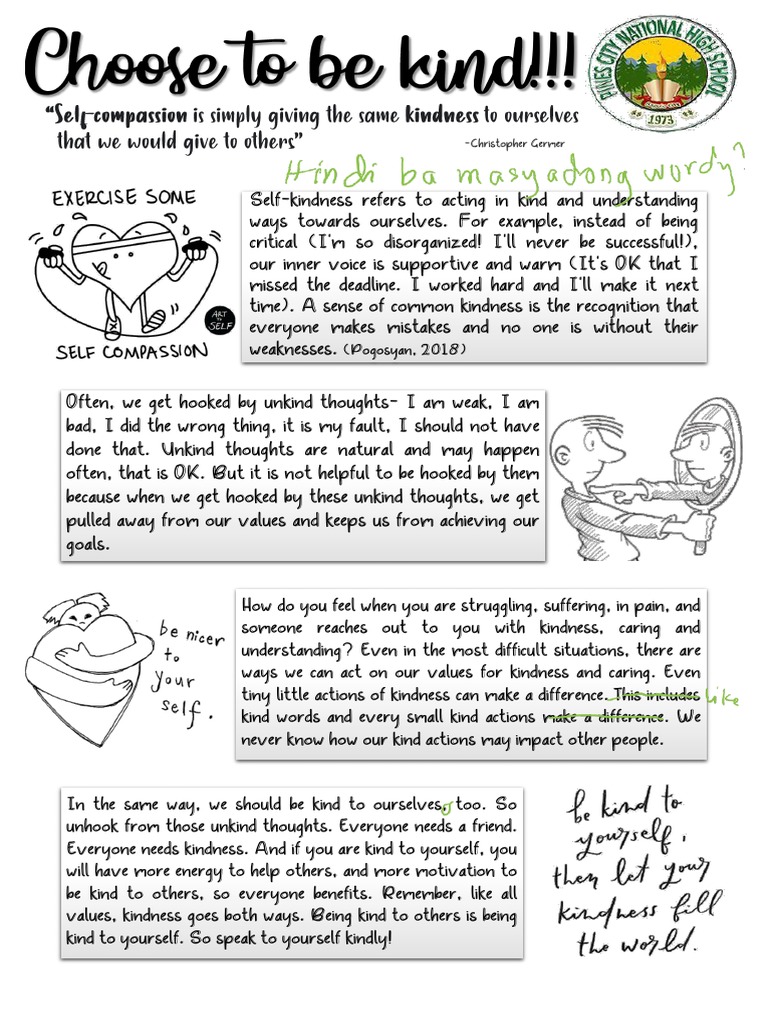 Choose to be kind!!!
PINES CITY NATIONAL HIGH SCHOOL
1973
"Self-compassion is simply giving the same kindness to ourselves
that we would give to others"
-Christopher Germer
Hindi ba masyadong wordy?
EXERCISE SOME
ART
TO
SELF
SELF COMPASSION
Self-kindness refers to acting in kind and understanding
ways towards ourselves. For example, instead of being
critical (I'm so disorganized! I'll never be successful!),
our inner voice is supportive and warm (It's OK that I
missed the deadline. I worked hard and I'll make it next
time). A sense of common kindness is the recognition that
everyone makes mistakes and no one is without their
weaknesses. (Pogosyan, 2018)
Often, we get hooked by unkind thoughts- I am weak, I am
bad, I did the wrong thing, it is my fault, I should not have
done that. Unkind thoughts are natural and may happen
often, that is OK. But it is not helpful to be hooked by them
because when we get hooked by these unkind thoughts, we get
pulled away from our values and keeps us from achieving our
goals.
be nicer
to
your
self.
How do you feel when you are struggling, suffering, in pain, and
someone reaches out to you with kindness, caring and
understanding? Even in the most difficult situations, there are
ways we can act on our values for kindness and caring. Even
tiny little actions of kindness can make a difference. This includes like
kind words and every small kind actions make a difference. We
never know how our kind actions may impact other people.
In the same way, we should be kind to ourselves, too. So
unhook from those unkind thoughts. Everyone needs a friend.
Everyone needs kindness. And if you are kind to yourself, you
will have more energy to help others, and more motivation to
be kind to others, so everyone benefits. Remember, like all
values, kindness goes both ways. Being kind to others is being
kind to yourself. So speak to yourself kindly!
be kind to
yourself,
then let your
kindness fill
the world.